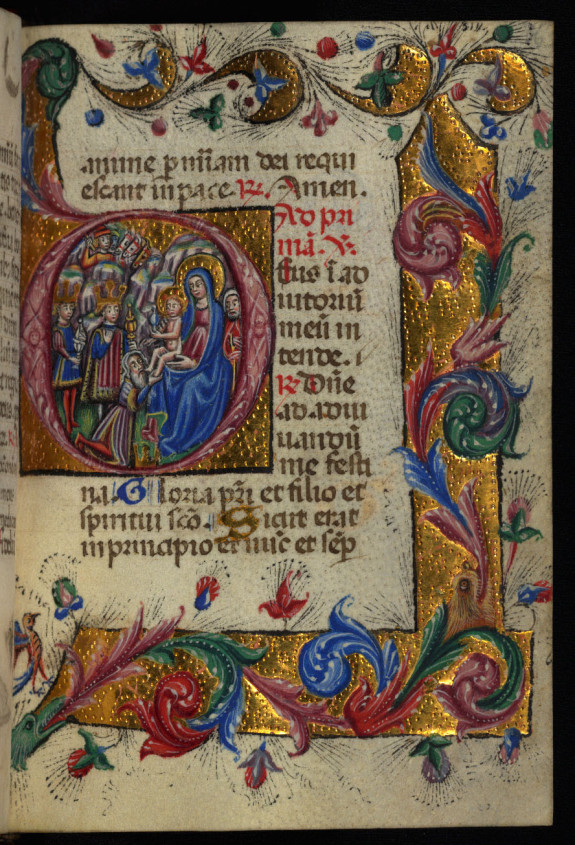 anime p miam dei requi
escant in pace. R. Amen.
Ad pri
mā. V.
Eus ī ad
iutoriū
meū in
tende.
R. Dñe
ad adiu
uandū
me festi
na. Gloria pr̄i et filio et
spiritui scō. Sicut erat
in principio et nūc et sēp